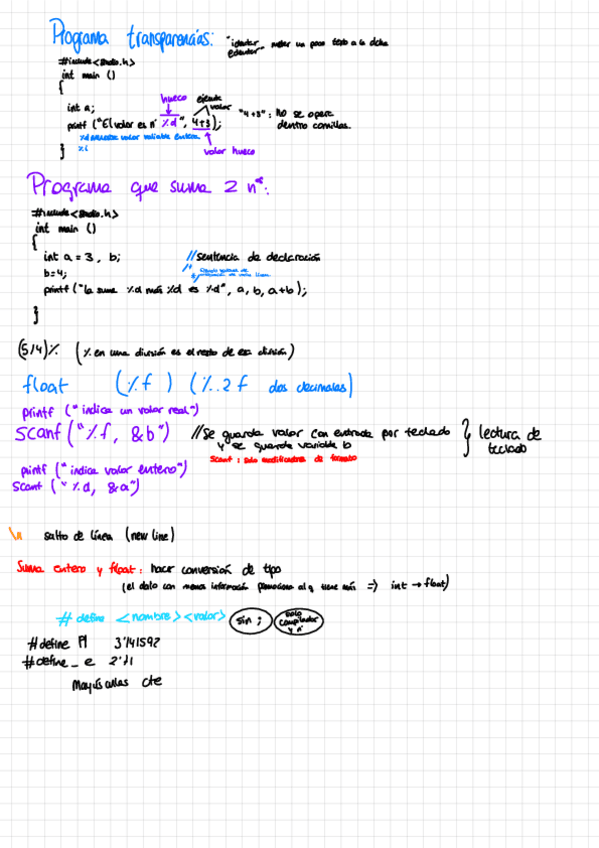 Programa transparencias: "identar" meter un poco texto a la dcha
#include<stdio.h>
int main ()
{
hueco ejecute valor
int a;
printf ("El valor es nº %d", 4+3); "4+3": no se opera dentro comillas.
%d muestra valor variable entera.
%i
} valor hueco
Programa que suma 2 nºs:
#include<stdio.h>
int main ()
{
int a = 3, b; //sentencia de declaración
b=4; /*
*/
printf ("la suma %d más %d es %d", a, b, a+b);
}
(5/4)% (% en una división es el resto de esa división)
float (%f) (%.2f dos decimales)
printf ("indica un valor real")
scanf ("%f, &b") //se guarda valor con entrada por teclado y se guarda variable b } lectura de teclado
scanf: solo modificadores de formato
printf ("indica valor entero")
scanf ("%d, &a")
\n salto de línea (new line)
Suma entero y float: hacer conversión de tipo
(el dato con menos información promociona al q tiene más => int → float)
# define <nombre><valor> sin ; solo compilador y nº
#define PI 3'141592
#define _ e 2'71
Mayúsculas cte